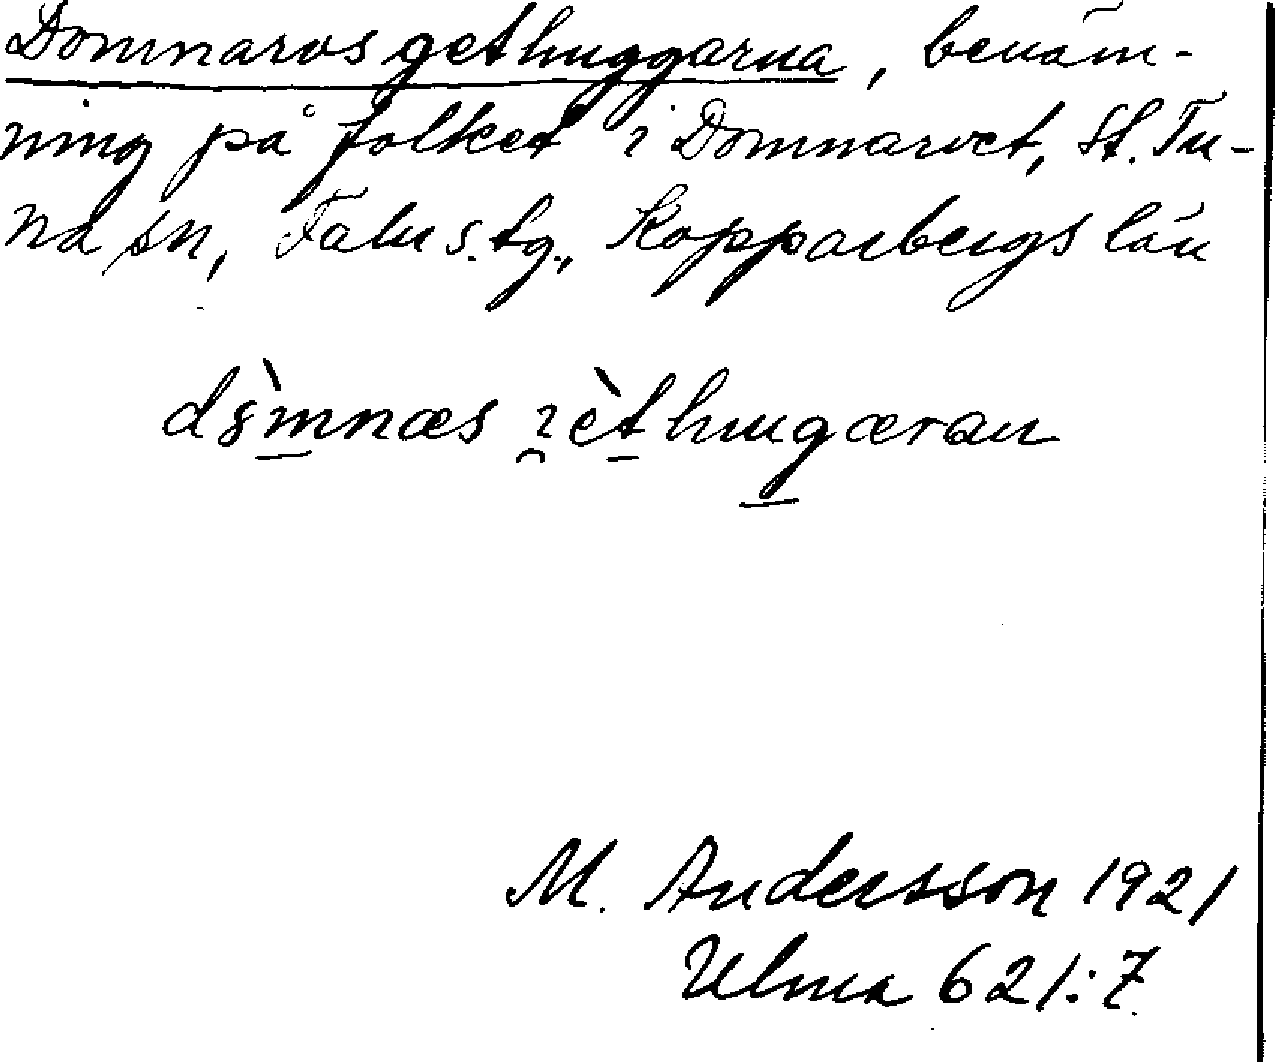 Domnarvsgethuggarna, benäm-
ning på folket i Domnarvet, St. Tu-
na sn, Falu s. tg., Kopparbergs län
M. Andersson 1921
Ulma 621:7.